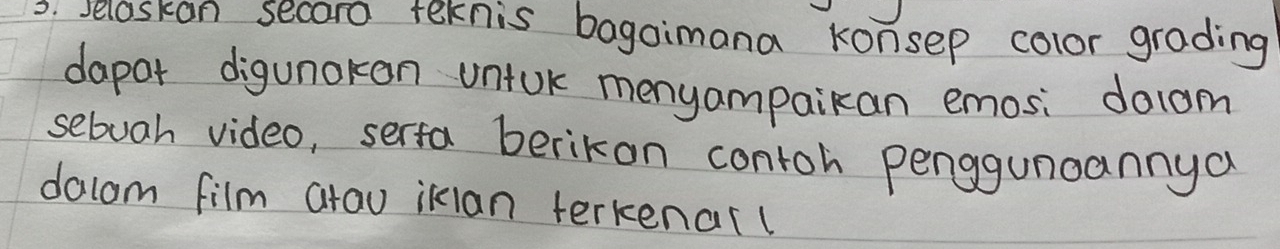 3. Jelaskan secara teknis bagaimana konsep color grading
dapat digunakan untuk menyampaikan emosi dalam
sebuah video, serta berikan contoh penggunaannya
dalam film atau iklan terkenal!